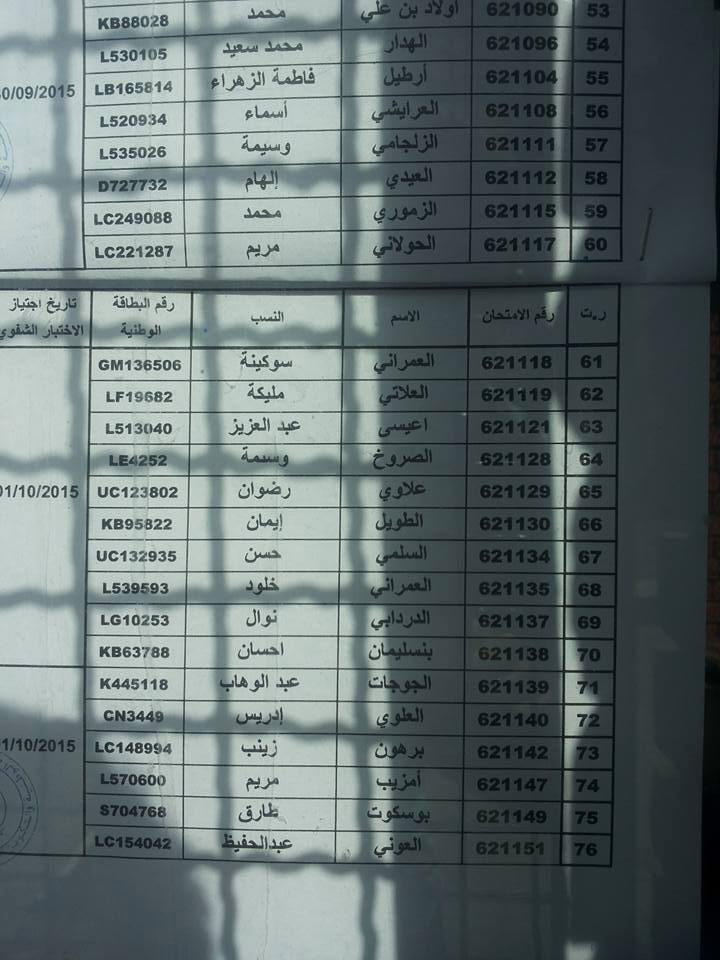 53 621090 اولاد بن علي محمد KB88028
54 621096 الهدار محمد سعيد L530105
55 621104 أرطيل فاطمة الزهراء LB165814
0/09/2015
56 621108 العرايشي أسماء L520934
57 621111 الزلجامي وسيمة L535026
58 621112 العيدي إلهام D727732
59 621115 الزموري محمد LC249088
60 621117 الحولاني مريم LC221287
ر.ت رقم الامتحان الاسم النسب رقم البطاقة الوطنية تاريخ اجتياز الاختبار الشفوي
61 621118 العمراني سوكينة GM136506
62 621119 العلاتي مليكة LF19682
63 621121 اعيسى عبد العزيز L513040
64 621128 الصروخ وسيمة LE4252
65 621129 علاوي رضوان UC123802 01/10/2015
66 621130 الطويل إيمان KB95822
67 621134 السلمي حسن UC132935
68 621135 العمراني خلود L539593
69 621137 الدردابي نوال LG10253
70 621138 بنسليمان احسان KB63788
71 621139 الجوجات عبد الوهاب K445118
72 621140 العلوي إدريس CN3449
73 621142 برهون زينب LC148994 01/10/2015
74 621147 أمزيب مريم L570600
75 621149 بوسكوت طارق S704768
76 621151 العوني عبدالحفيظ LC154042